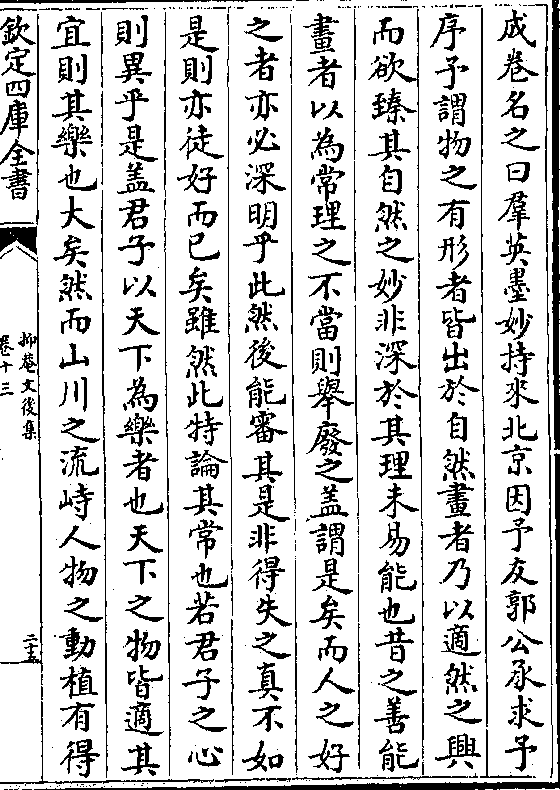 成卷名之曰羣英墨妙持來北京因予友郭公承求予
序予謂物之有形者皆出於自然畫者乃以適然之興
而欲臻其自然之妙非深於其理未易能也昔之善能
畫者以為常理之不當則舉廢之盖謂是矣而人之好
之者亦必深明乎此然後能審其是非得失之真不如
是則亦徒好而已矣雖然此特論其常也若君子之心
則異乎是盖君子以天下為樂者也天下之物皆適其
宜則其樂也大矣然而山川之流峙人物之動植有得
欽定四庫全書
抑菴文後集
卷十三
二十五